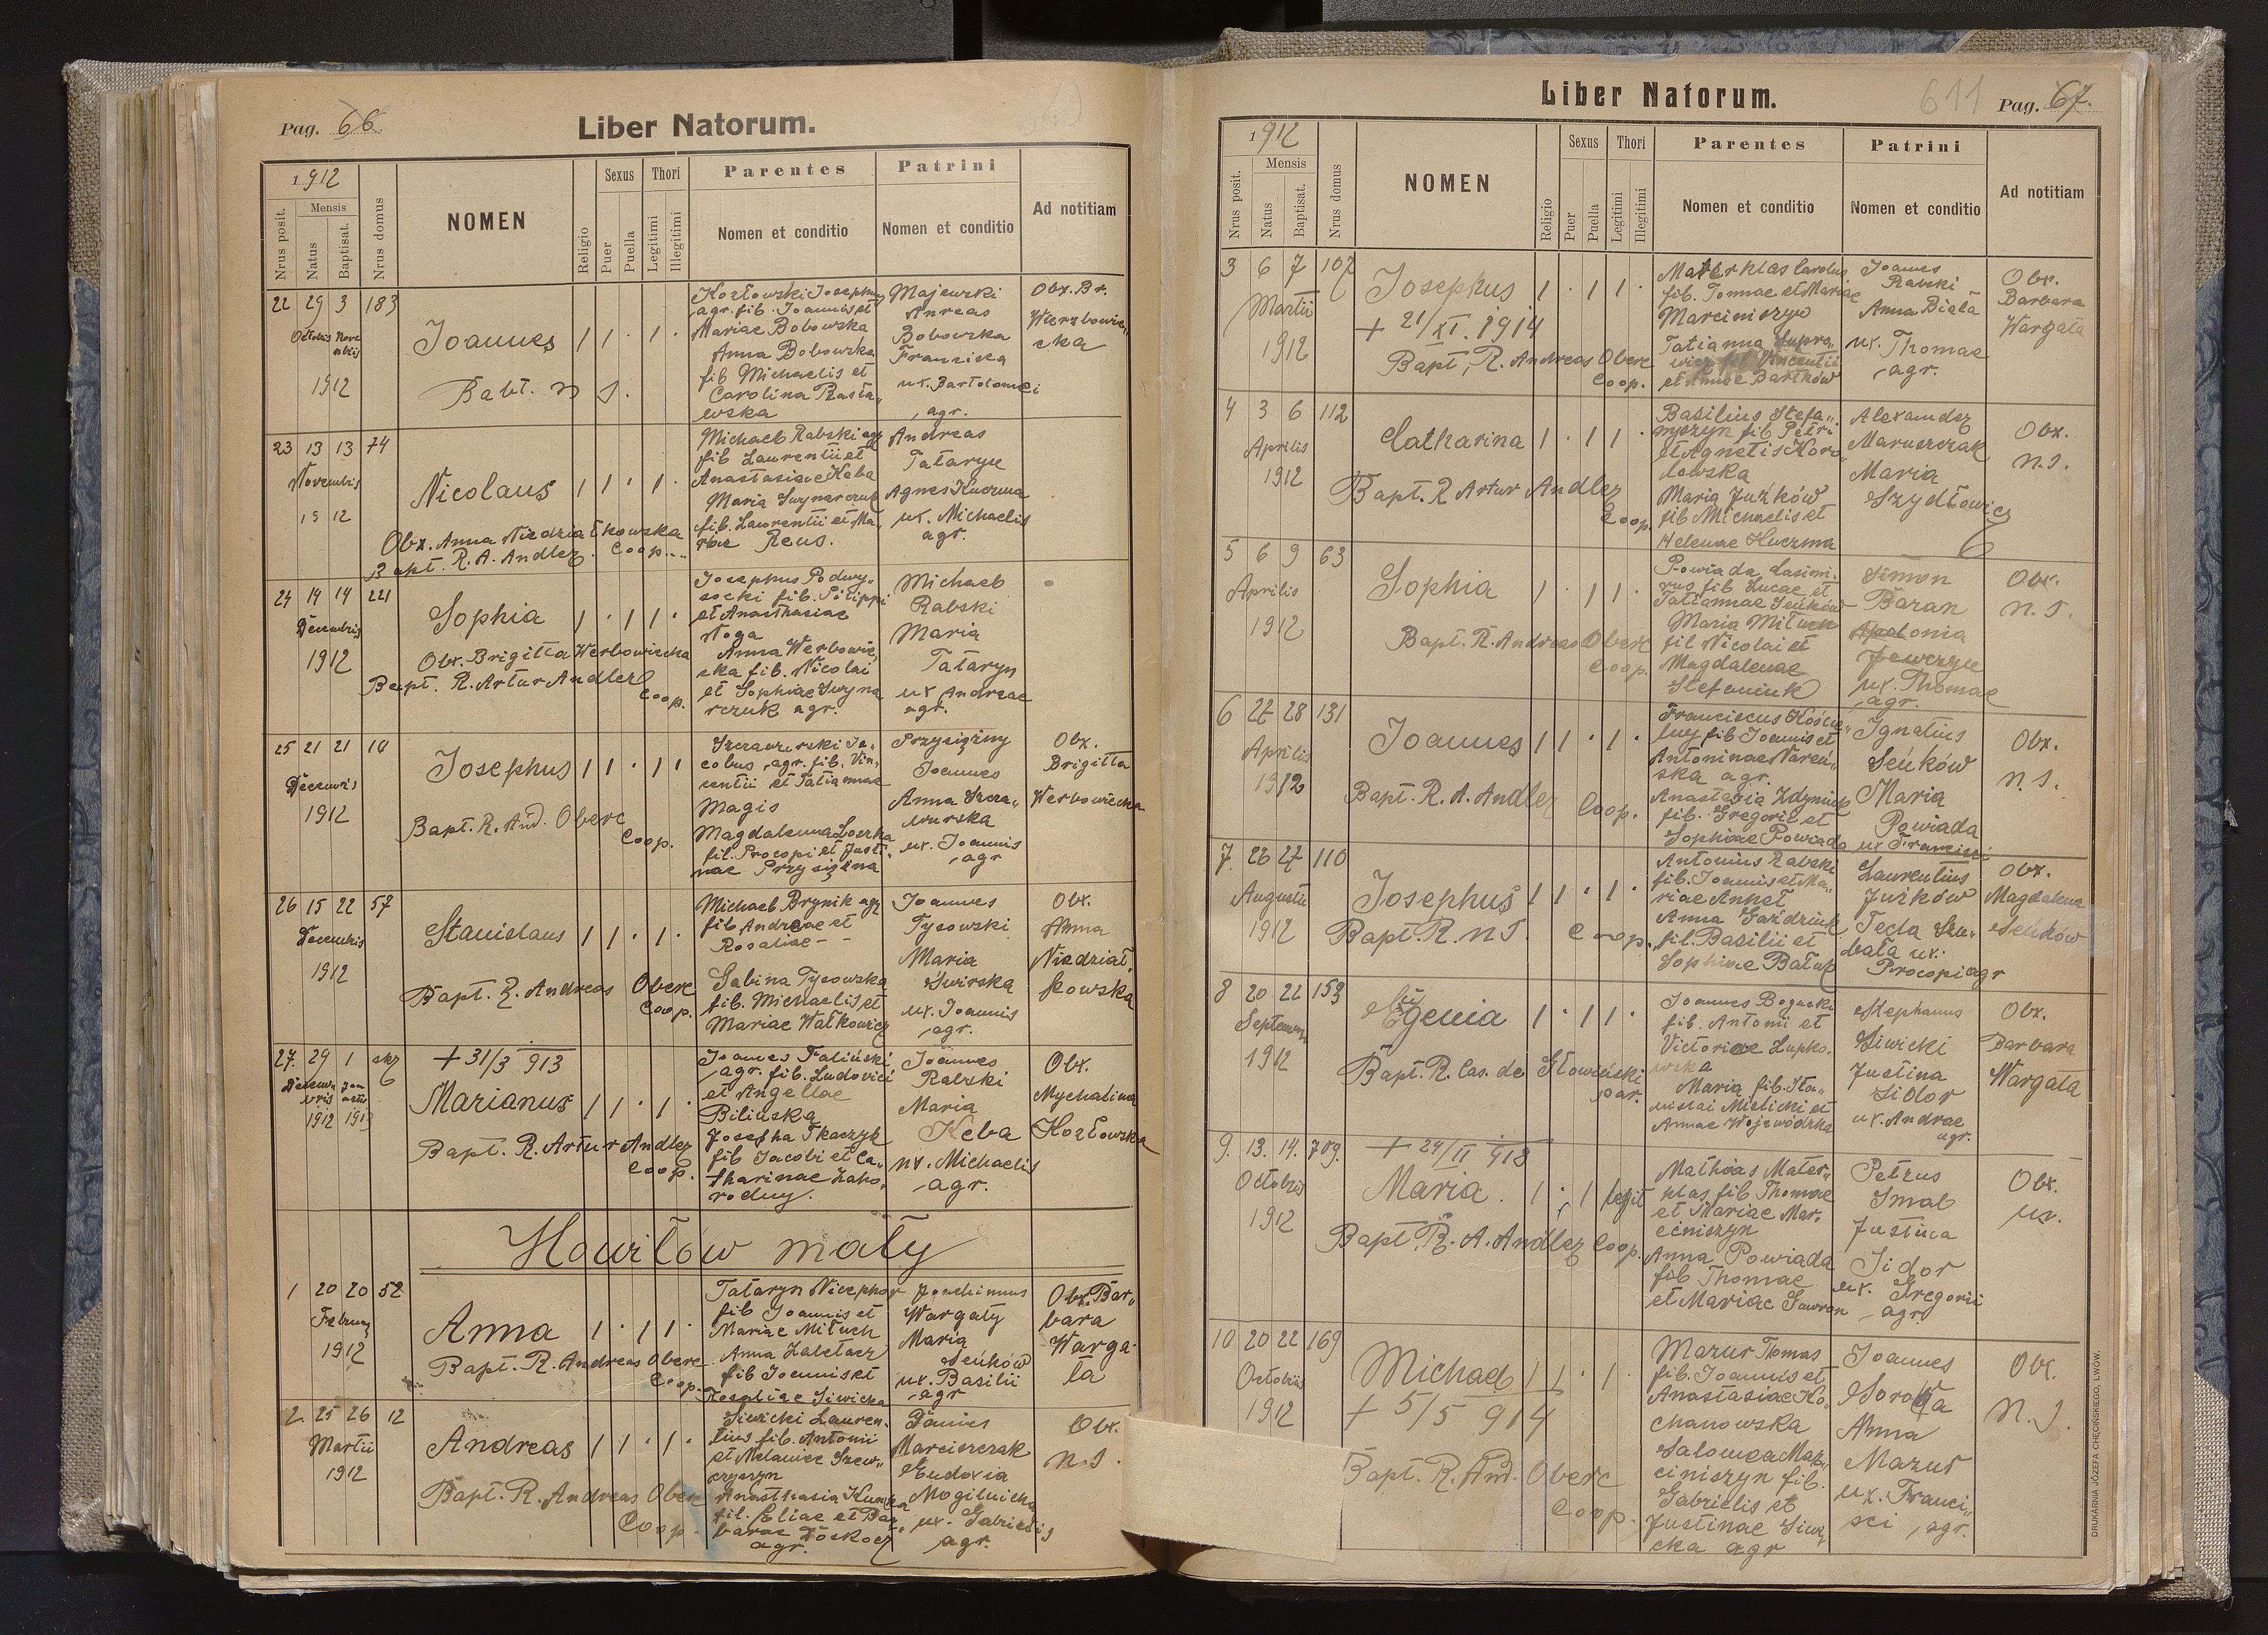 Pag. 66
Liber Natorum.
1912
Nrus posit.
Mensis
Natus
Baptisat.
Nrus domus
NOMEN
Religio
Sexus
Puer
Puella
Thori
Legitimi
Illegitimi
Parentes
Nomen et conditio
Patrini
Nomen et conditio
Ad notitiam
22 29 3 183
Octobris Novembris
1912
Joannes 1 1 . 1 .
Babt. n s.
Kozłowski Josephus
agr. fil. Joannis et
Mariae Bobowska
Anna Bobowska
fil Michaelis et
Carolina
Majewski
Anreas
Bobowska
Francisca
ux. Bartolomei
agr.
Obx. Br.
23 13 13 74
Novembris
1912
Nicolaus 1 1 . 1 .
Obx. Anna Niedziałkowska
Bapt. R. A. Andlez. Coop.
Michael Rabski agr
fil Laurentii et
Anastasiae Keba
Maria Swynarczuk
fil. Laurentii et Ma„
riae Reus.
Andreas
Tataryn
Agnes Kuczma
ux. Michaelis
agr.
24 14 14 221
Decembris
1912
Sophia 1 . 1 1 .
Obx. Brigitta Werbowiecka
Bapt. R. Artur Andlez
Coop.
Josephus Podwy„
socki fil. Pilippi
et Anasthasiae
Noga
Anna Werbowie„
cka fil. Nicolai
et Sophiae Swyna
rczuk agr.
Michael
Rabski
Maria
Tataryn
ux Andreae
agr.
25 21 21 10
1912
Josephus 1 1 . 1 1
Bapt. R. And. Oberc
Coop.
cobus, agr. fil. Vin„
centii et Tatiannae
Magis
Magdalenna
fil. Procopi et Justi„
nae Przysiężna
Przysiężny
Joannes
Anna
ux. Joannis
agr
Obx.
Brigitta
Werbowiecka
26 15 22 57
Decembris
1912
Stanislaus 1 1 . 1 .
Bapt. R. Andreas Oberc
Coop.
Michael Brynik agr
fil Andreae et
Rosaliae - -
Sabina Tysowska
fil. Michaelis et
Mariae Walkowicz
Joannes
Tysowski
Maria
Swirska
ux. Joannis
agr.
Obx.
Anna
Niedział„
kowska
27. 29 1
1912 1913
+ 31/3 913
Marianus 1 1 . 1 .
Bapt. R. Artur Andlez
Coop.
Joannes Faliński
agr. fil. Ludovici
et Angellae
Bilinska
Josepha Tkaczyk
fil Jacobi et Ca„
tharinae Zaho„
rodny.
Joannes
Rabski
Maria
Keba
ux. Michaelis
agr.
Obx.
Mychalina
Kozłowska
Howiłow mały
1 20 20 52
1912
Anna 1 . 1 1 .
Bapt. R. Andreas Oberc
Coop.
Tataryn Nicephor
fil Joannis et
Mariae Miłuch
Anna
fil Joannis et
Rosaliae Siwicka
Joachimus
Wargaty
Maria
Seńków
ux. Basilii
agr
Obx. Bar„
bara
Warga„
ta
2. 25 26 12
Martii
1912
Andreas 1 1 . 1 .
Bapt. R. Andreas Oberc
Coop.
Siwicki Lauren„
tius fil. Antonii
et Melaniae Szew„
czyszyn
fil. Eliae et Bar„
barae
agr.
Marciszczak
Eudoxia
Mogilnicka
ux. Gabrielis
agr.
Obx.
n. s.
Liber Natorum.
611 Pag. 67.
1912
Nrus posit.
Mensis
Natus
Baptisat.
Nrus domus
NOMEN
Religio
Sexus
Puer
Puella
Thori
Legitimi
Illegitimi
Parentes
Nomen et conditio
Patrini
Nomen et conditio
Ad notitiam
3 6 7 107
Martii
1912
Josephus 1 . 1 1 .
+ 21/XI. 1914
Bapt. R. Andreas Oberc
Coop.
Materklas Carolus
fil. Tomae et Mariae
Marciniszyn
Tatianna
et Annae Bartków
Joannes
Rabski
Anna Biała
ux. Thomae
agr.
Obx.
Barbara
Wargata
4 3 6 112
Aprilis
1912
Catharina 1 . 1 1 .
Bapt. R Artur Andlez
Coop.
Basilius Stefa„
nyszyn fil Petri
et Agnetis Koro„
lowska
Maria Jużków
fil Michaelis et
Helenae Kuczma
Alexander
Maruszczak
Maria
Szydłowicz
Obx.
n. s.
5 6 9 63
Aprilis
1912
Sophia 1 . 1 1 .
Bapt. R. Andreas Oberc
Coop.
Powiada Casimi„
rus fil Lucae et
Tatiannae Seńków
Maria Miłuch
fil Nicolai et
Magdalenae
Stefaniuk
Simon
Baran
Apolonia
ux. Thomae
agr.
Obx.
n. s.
6 27 28 131
Aprilis
1912
Joannes 1 1 . 1 .
Bapt. R. A. Andlez Coop.
Franciscus
fil Joannis et
Antoninae
ska agr.
Anastasia
fil. Gregorii et
Sophiae Powiada
Ignatius
Seńków
Maria
Powiada
ux Francisci
Obx.
n. s.
7. 26 27 110
Augusti
1912
Josephus 1 1 . 1 .
Bapt. R. n s. Coop.
Antonius Rabski
fil. Joannis et Ma„
riae
Anna Gaździuk
fil. Basilii et
Sophiae Batuk
Laurentius
Jużków
Tecla
ux.
Procopi agr
Obx.
Magdalena
Seńków
8 20 22 153
1912
Eugenia 1 . 1 1 .
Bapt. R. Cas. de Słowiński
par.
Joannes Bogucki
fil. Antonii et
Victoriae Zupko„
wska
Maria fil. Sta„
nislai Mielicki et
Annae Wojewódzka
Stephanus
Siwicki
Justina
Sidor
ux. Andrae
agr.
Obx.
Barbara
Wargata
9. 13. 14. 709.
Octobris
1912
+ 24/II 918
Maria. 1 . 1 legit
Bapt. R. A. Andlez Coop.
Mathias Mater„
klas fil Thomae
et Mariae Mar„
ciniszyn
Anna Powiada
fil Thomae
et Mariae Gawron
Petrus
Smal
Justina
Sidor
ux. Gregorii
agr
Obx.
ux.
10 20 22 169
Octobris
1912
Michael 1 1 . 1
+ 5/5 914
Bapt. R. And. Oberc
Coop.
Mazur Tomas
fil. Joannis et
Anastasiae Ko„
chanowska
Salomea Mar„
ciniszyn fil.
Gabrielis et
Justinae Siwi„
cka agr
Joannes
Soroka
Anna
Mazur
ux. Franci„
sci, agr.
Obx.
N. S.
DRUKARNIA JÓZEFA CHĘCIŃSKIEGO, LWÓW.